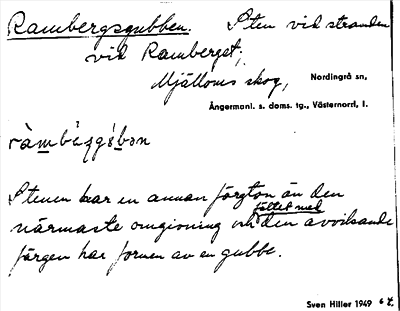 Rambergsgubben. Sten vid stranden
vid Ramberget,
Mjälloms skog, Nordingrå sn,
Ångermanl. s. doms. tg., Västernorrl. l.
Stenen har en annan färgton än den
fältet med
närmaste omgivning och den avvikande
färgen har formen av en gubbe.
Sven Hiller 1949